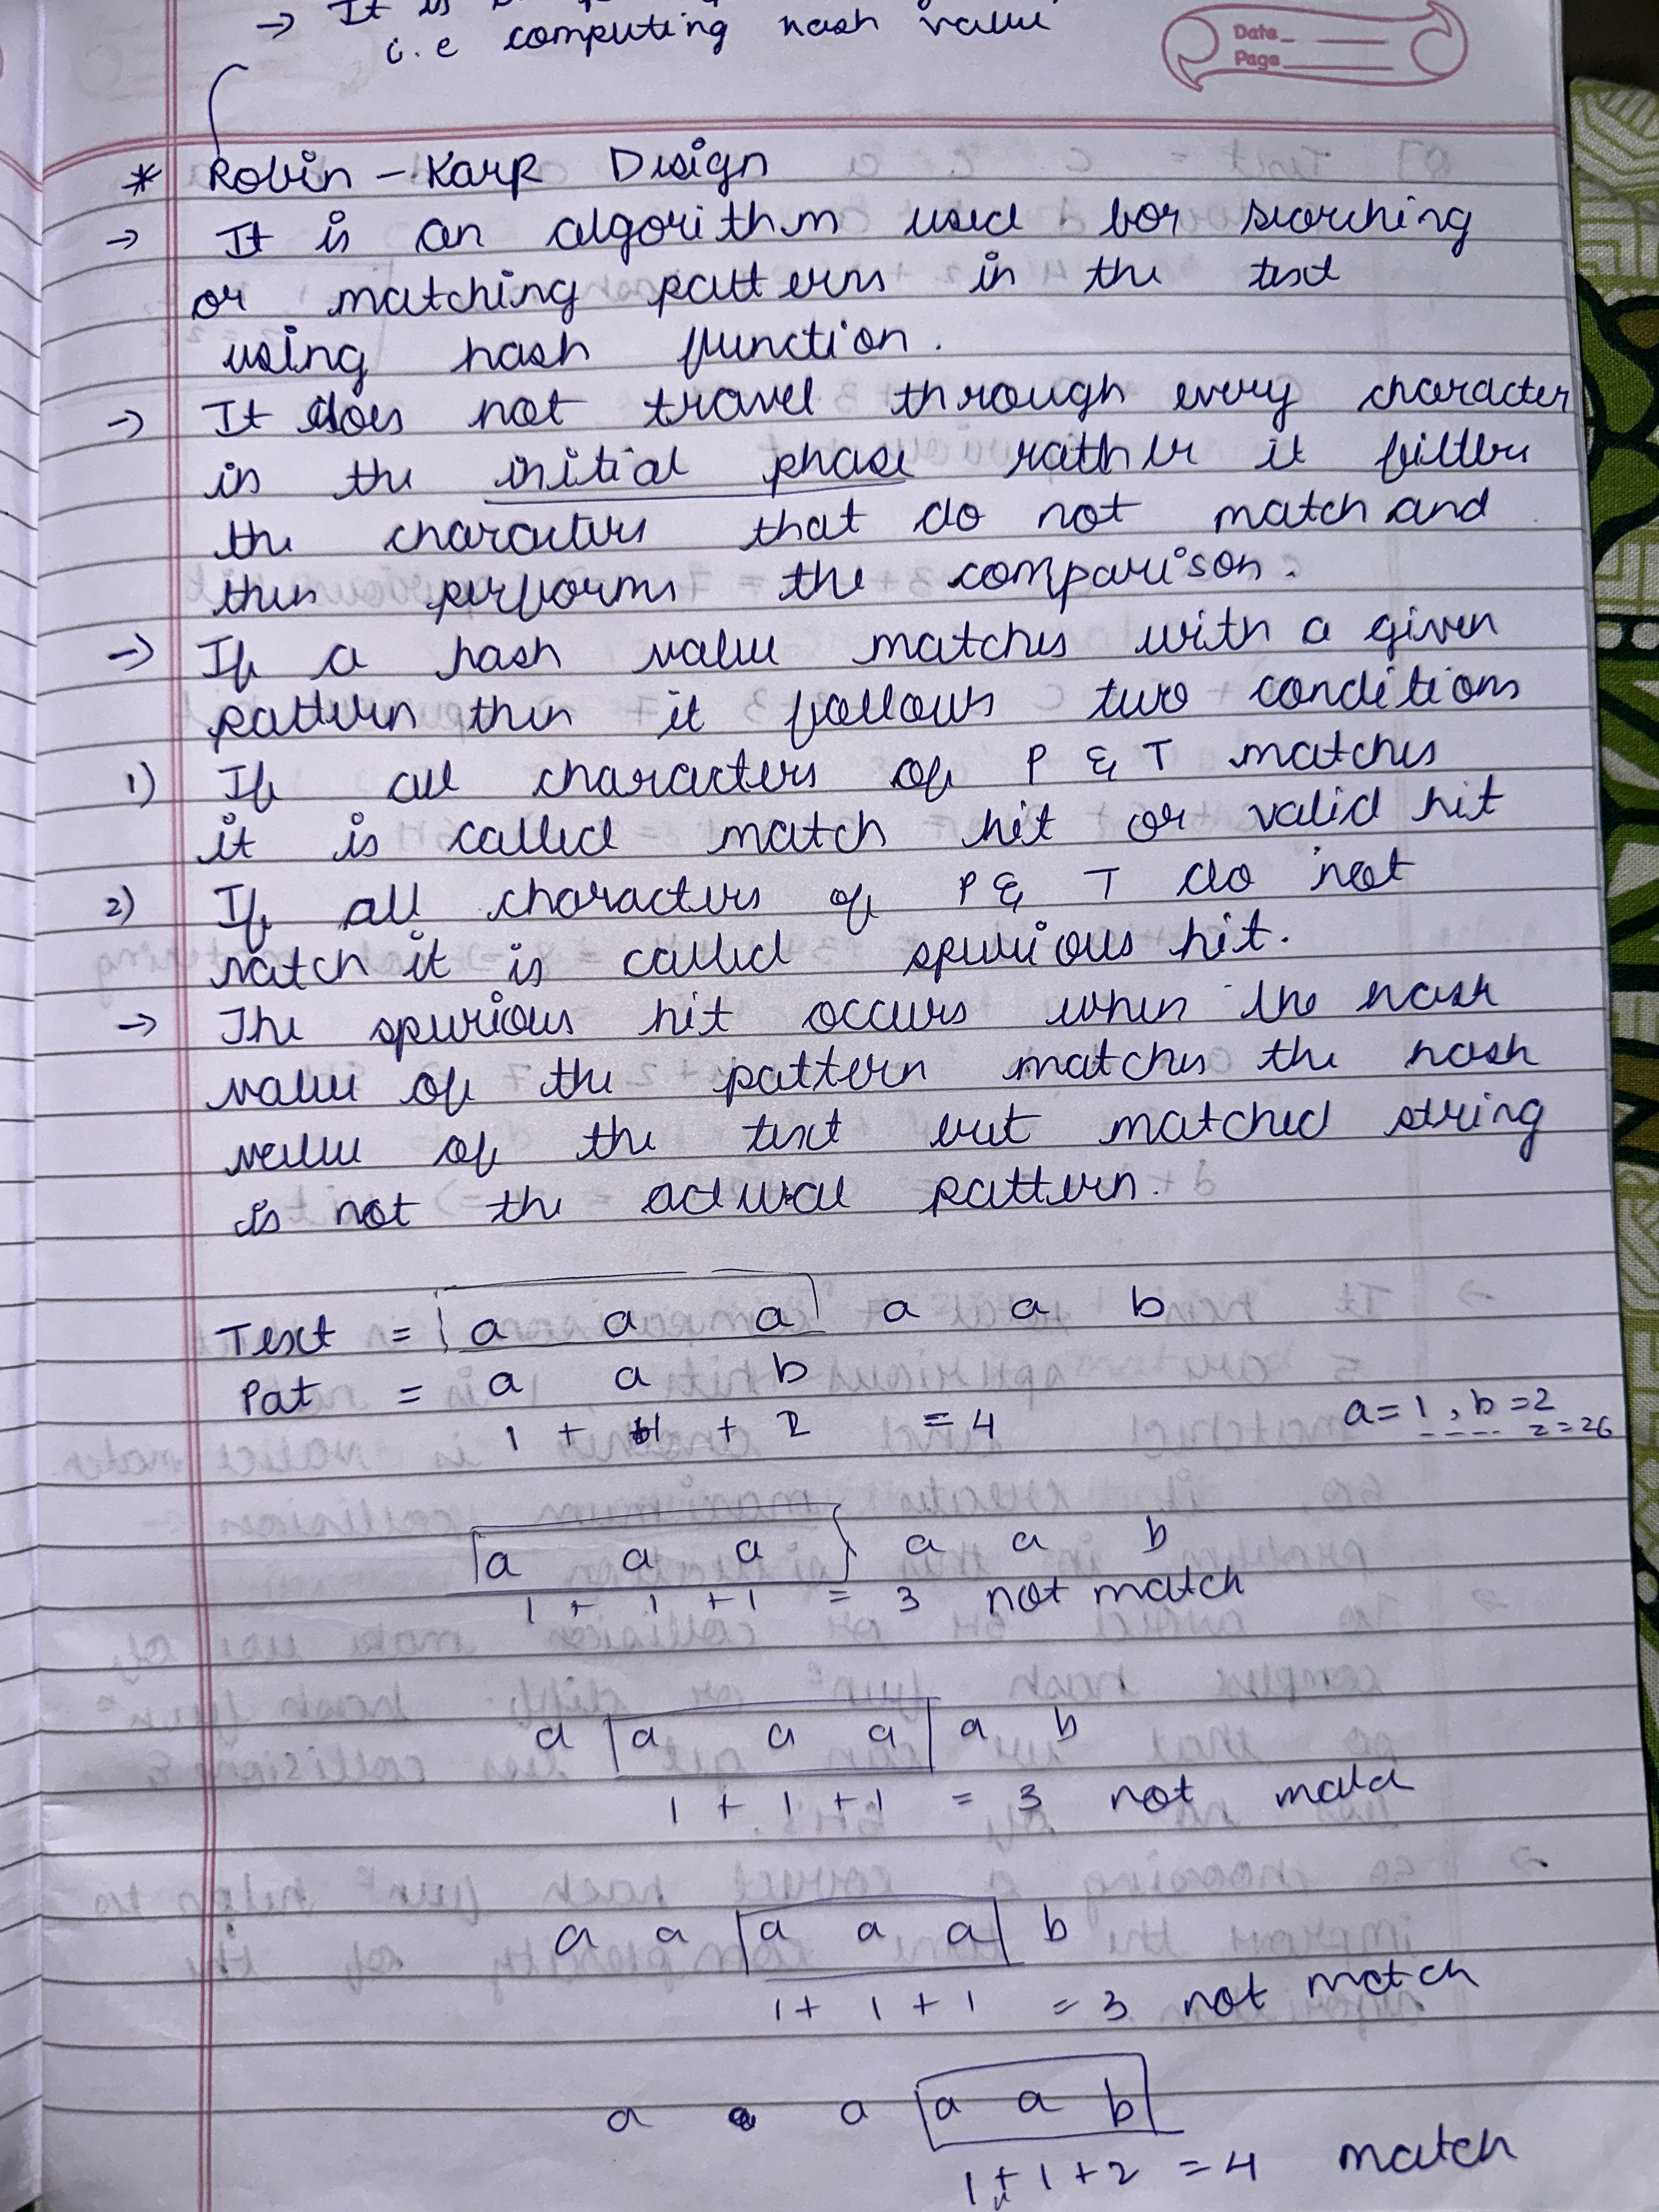 → It is
i.e computing hash value
Date
Page
* Robin - Karp Design
→ It is an algorithm used for searching
or matching patterns in the text
using hash function.
→ It does not travel through every character
in the initial phase rather it filters
the characters that do not match and
then performs the comparison.
→ If a hash value matches with a given
pattern then it follows two conditions
1) If all characters of P & T matches
it is called match hit or valid hit
2) If all characters of P & T do not
match it is called spurious hit.
→ The spurious hit occurs when the hash
value of the pattern matches the hash
value of the text but matched string
is not the actual pattern.
Text = a a a a a b
Pat = a a b
1 + 1 + 2 = 4
a=1, b=2
---- z=26
a a a a a b
1 + 1 + 1 = 3 not match
a a a a a b
1 + 1 + 1 = 3 not match
a a a a a b
1 + 1 + 1 = 3 not match
a a a a a b
1+1+2 = 4 match